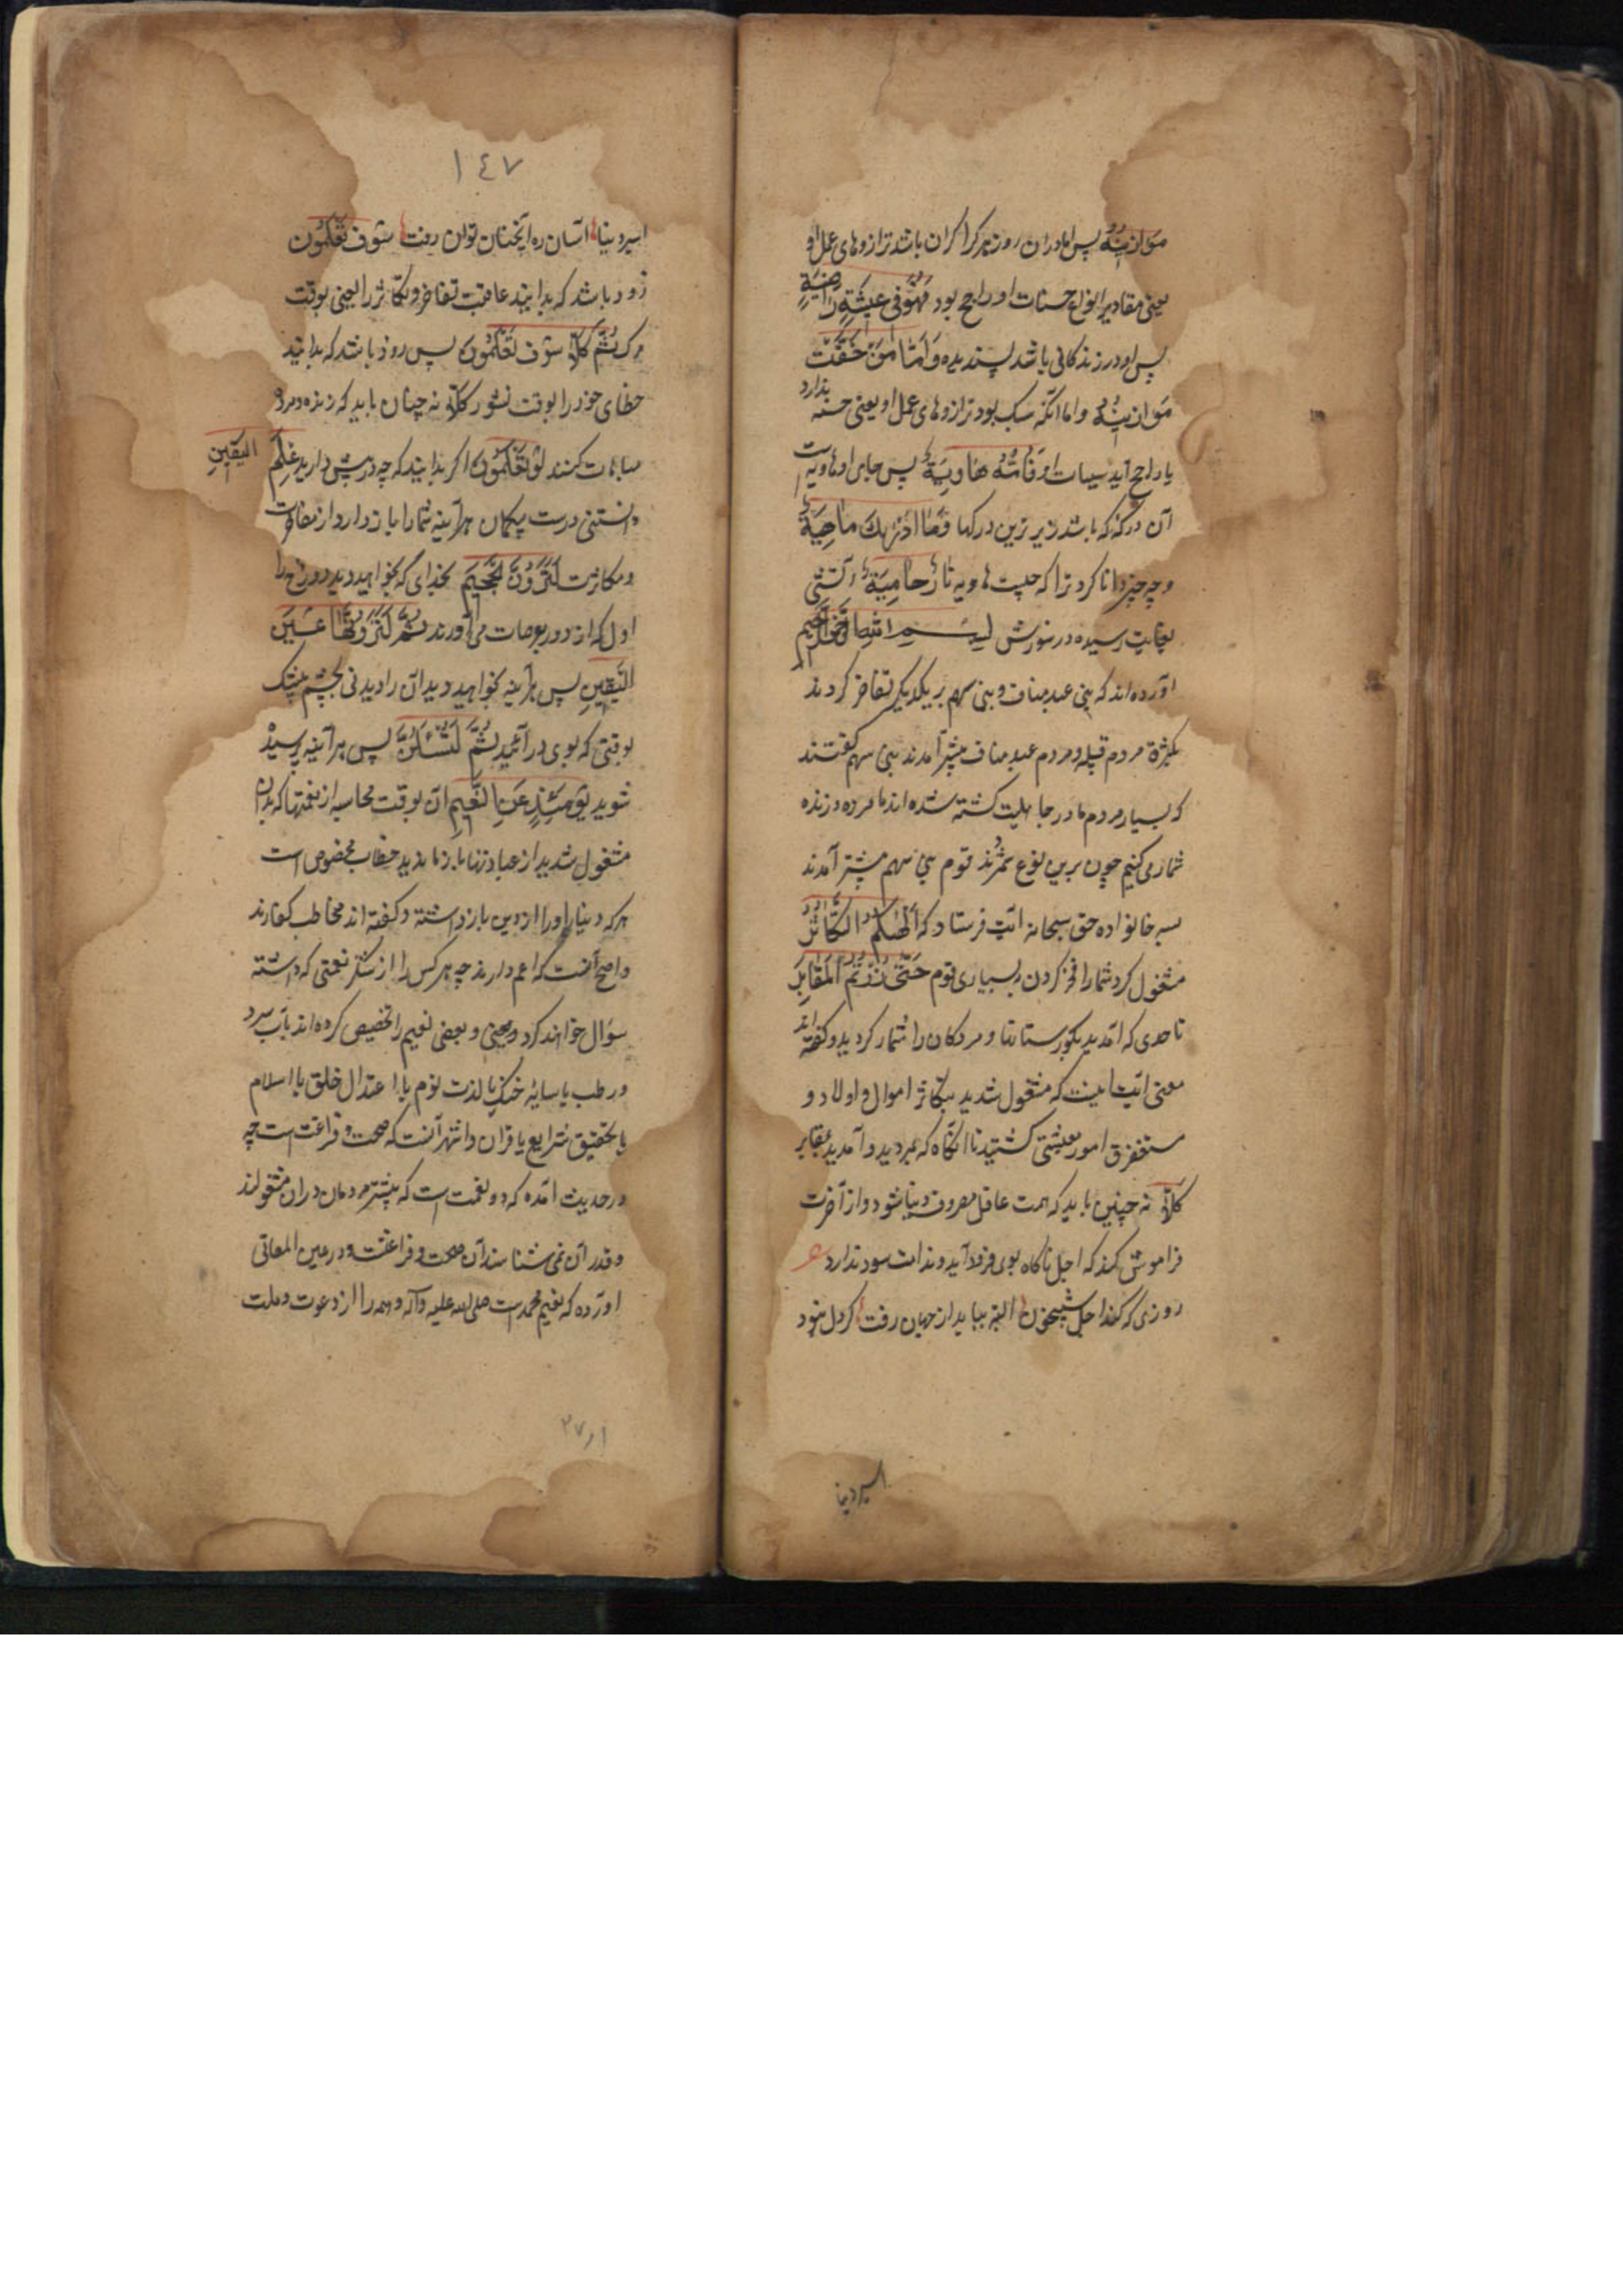 مَوَازِینُهُ پس اما دران روز هر کرا کران باشد ترازوهای عمل او
یعنی مقادیر انواع حسنات او راجح بود فَهُوَ فِی عِیشَةٍ رَاضِیَةٍ
پس او در زندکانی باشد پسندیده وَاَمَّا مَنْ خَفَّتْ
مَوَازِینُهُ و اما آنکه سبک بود ترازوهای عمل او یعنی حسنه ندارد
یا راجح آید سیات او فَاُمُّهُ هَاوِیَةٌ پس جای او هاویه است
آن درکه که باشد زیرترین درکها وَمَا اَدْرٰیكَ مَاهِیَهْ
و چه چیز دانا کرد ترا که چیست هاویه نَارٌ حَامِیَةٌ آتشی
بغایت رسیده در سوزش بسم الله الرحمن الرحیم
آورده اند که بنی عبد مناف و بنی سهم بر یکدیکر تفاخر کردند
بکثرة مردم قبیله و مردم عبد مناف بیشتر آمدند بنی سهم کفتند
که بسیار مردم ما در جاهلیت کشته شده اند ما مرده و زنده
شمار می کنیم چون برین نوع شمردند قوم بنی سهم بیشتر آمدند
بسه خانواده حق سبحانه آیت فرستاد که اَلْهٰیکُمُ التَّکَاثُرُ
مشغول کرد شما را فخر کردن ببسیاری قوم حَتّٰی زُرْتُمُ الْمَقَابِرَ
تا حدی که آمدید بکورستانها و مردکان را شمار کردید و کفته اند
معنی آیت اینست که مشغول شدید بتکاثر اموال و اولاد و
مستغرق امور معیشتی کشتید تا آنکاه که بمردید و آمدید بمقابر
کَلَّا نه چنین باید که همت عاقل مصروف دنیا شود و از آخرت
فراموش کند که اجل ناکاه بوی فرود آید و ندامت سود ندارد
روزی که کند اجل شبیخون البته بباید از جهان رفت کر دل نبود
اسیر دنیا
١٤٧
اسیر دنیا آسان ره آنجهان توان رفت سَوْفَ تَعْلَمُونَ
زود باشد که بدانید عاقبت تفاخر و تکاثر را یعنی بوقت
مرک ثُمَّ کَلَّا سَوْفَ تَعْلَمُونَ پس زود باشد که بدانید
خطای خود را بوقت نشور کَلَّا نه چنان باید که زنده و مرده
مباهات کنند لَوْ تَعْلَمُونَ اکر بدانید که چه در پیش دارید عِلْمَ الْیَقِینِ
دانستنی درست بیکمان هرآینه شما را باز دارد از مفاخرت
و مکاثرت لَتَرَوُنَّ الْجَحِیمَ بخدای که بخواهید دید دوزخ را
اول که از دور بعرصات می آورند ثُمَّ لَتَرَوُنَّهَا عَیْنَ
الْیَقِینِ پس هرآینه بخواهید دید آن را دیدنی بچشم بیشک
بوقتی که بوی درآئید ثُمَّ لَتُسْئَلُنَّ پس هرآینه پرسیده
شوید یَوْمَئِذٍ عَنِ النَّعِیمِ آن بوقت محاسبه از نعمتها که بدان
مشغول شدید از عبادتها باز ماندید خطاب مخصوص است
هر که دنیا او را از دین باز داشته و کفته اند مخاطب کفارند
و اصح آنست که اعم دارند چه هر کس را از شکر نعمتی که داشته
سؤال خواهند کرد و بعضی نعیم را تخصیص کرده اند بآب سرد
و رطب یا سایه خنک یا لذت نوم یا اعتدال خلق یا اسلام
یا تخفیف شرایع یا قران و اشهر آنست که صحت و فراغت است چه
در حدیث آمده که دو نعمت است که بیشتر مردمان دران مشغولند
و قدر آن نمی شناسند آن صحت و فراغتست و در عین المعانی
آورده که نعیم محمد است صلی الله علیه وآله و همه را از دعوت و ملت